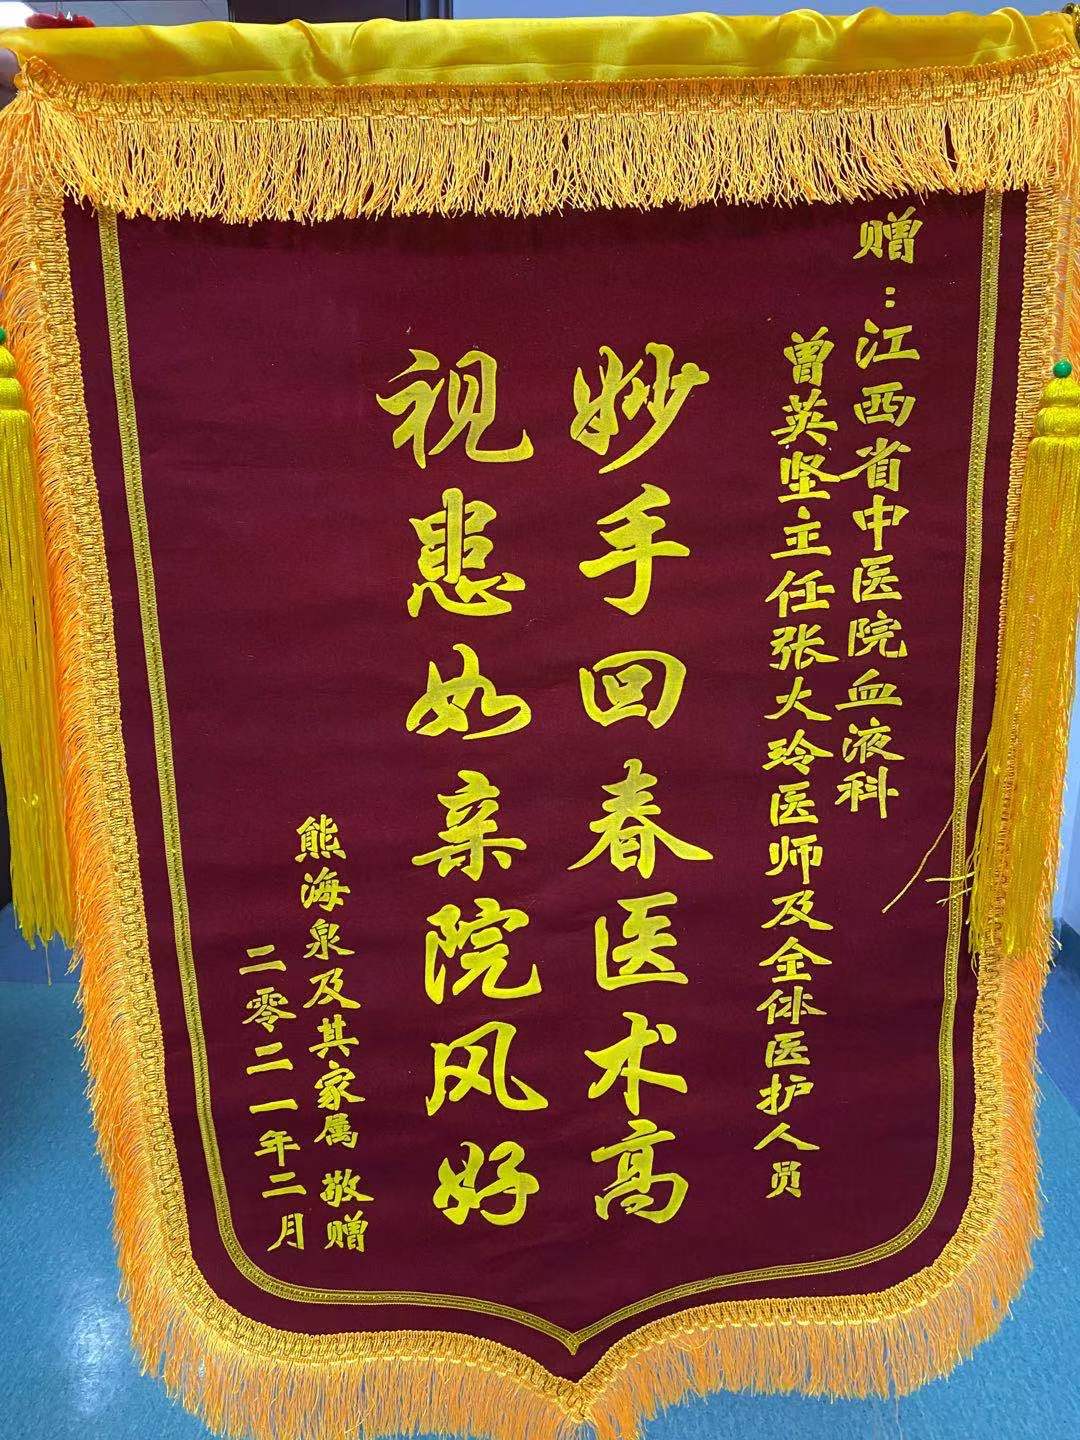 赠:江西省中医院血液科
曾英坚主任张火玲医师及全体医护人员
妙手回春医术高
视患如亲院风好
熊海泉及其家属 敬赠
二零二一年二月